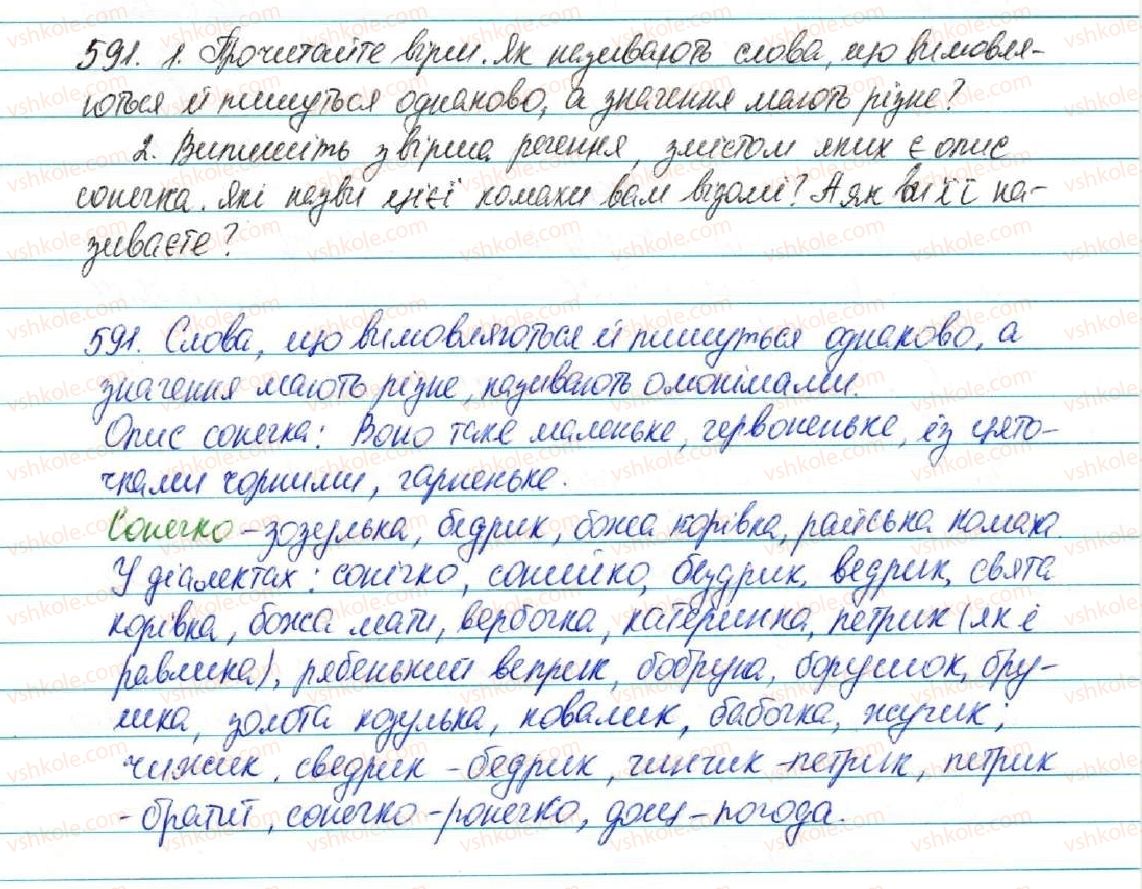 591. 1. Прочитайте вірш. Як називають слова, що вимовля-
ються й пишуться однаково, а значення мають різне?
2. Випишіть з вірша речення, змістом яких є опис
сонечка. Які назви цієї комахи вам відомі? А як ви її на-
зиваєте?
591. Слова, що вимовляються й пишуться однаково, а
значення мають різне, називають омонімами.
Опис сонечка: Воно таке маленьке, червоненьке, із цято-
чками чорними, гарненьке.
Сонечко – зозулька, бедрик, божа корівка, райська комаха.
У діалектах: сонічко, сонійко, бездрик, ведрик, свята
корівка, божа мати, вербочка, катеринка, петрик (як і
равлика), рябенький веприк, бобруна, борушок, бру-
шка, золота козулька, ковалик, бабочка, жучик;
чижик, сведрик - бедрик, чинчик - петрик, петрик
- братит, сонечко - ронечко, дощ - погода.